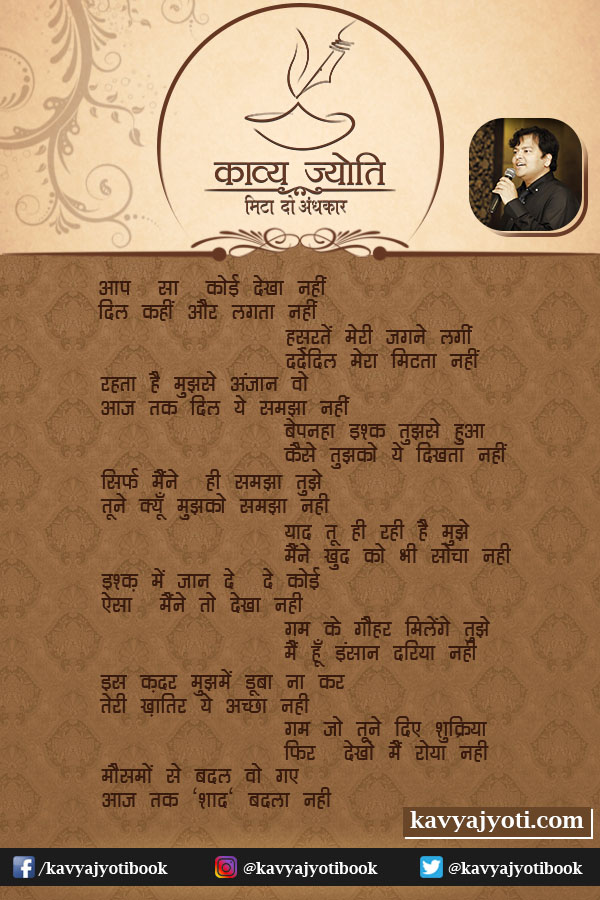 काव्य ज्योति
मिटा दो अंधकार
आप सा कोई देखा नहीं
दिल कहीं और लगता नहीं
हसरतें मेरी जगने लगीं
दर्देदिल मेरा मिटता नहीं
रहता है मुझसे अंजान वो
आज तक दिल ये समझा नहीं
बेपनहा इश्क तुझसे हुआ
कैसे तुझको ये दिखता नहीं
सिर्फ मैंने ही समझा तुझे
तूने क्यूँ मुझको समझा नही
याद तू ही रही है मुझे
मैंने खुद को भी सोचा नही
इश्क़ में जान दे दे कोई
ऐसा मैंने तो देखा नही
गम के गौहर मिलेंगे तुझे
मैं हूँ इंसान दरिया नही
इस क़दर मुझमें डूबा ना कर
तेरी ख़ातिर ये अच्छा नही
गम जो तूने दिए शुक्रिया
फिर देखो मैं रोया नही
मौसमों से बदल वो गए
आज तक ‘शाद‘ बदला नही
kavyajyoti.com
/kavyajyotibook
@kavyajyotibook
@kavyajyotibook